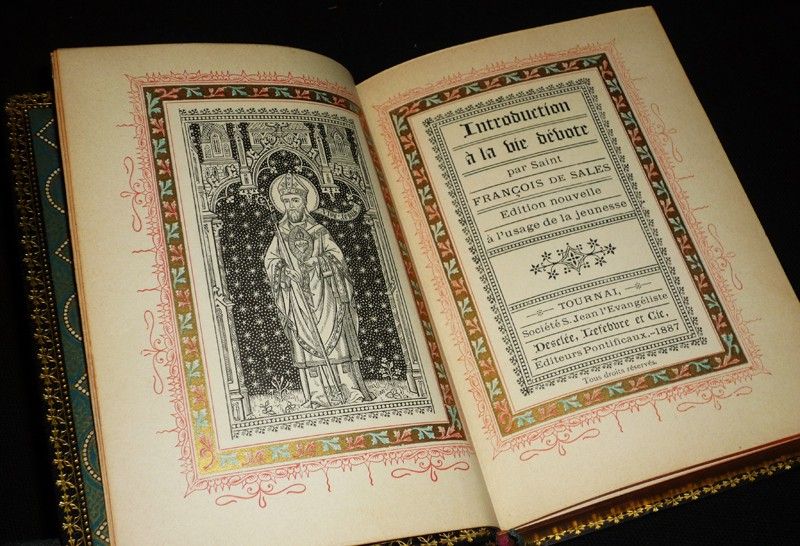 Introduction
à la vie dévote
par Saint
FRANÇOIS DE SALES
Edition nouvelle
à l'usage de la jeunesse
TOURNAI,
Société S. Jean l'Evangéliste
Desclée, Lefebvre et Cie,
Editeurs Pontificaux.–1887
Tous droits réservés.